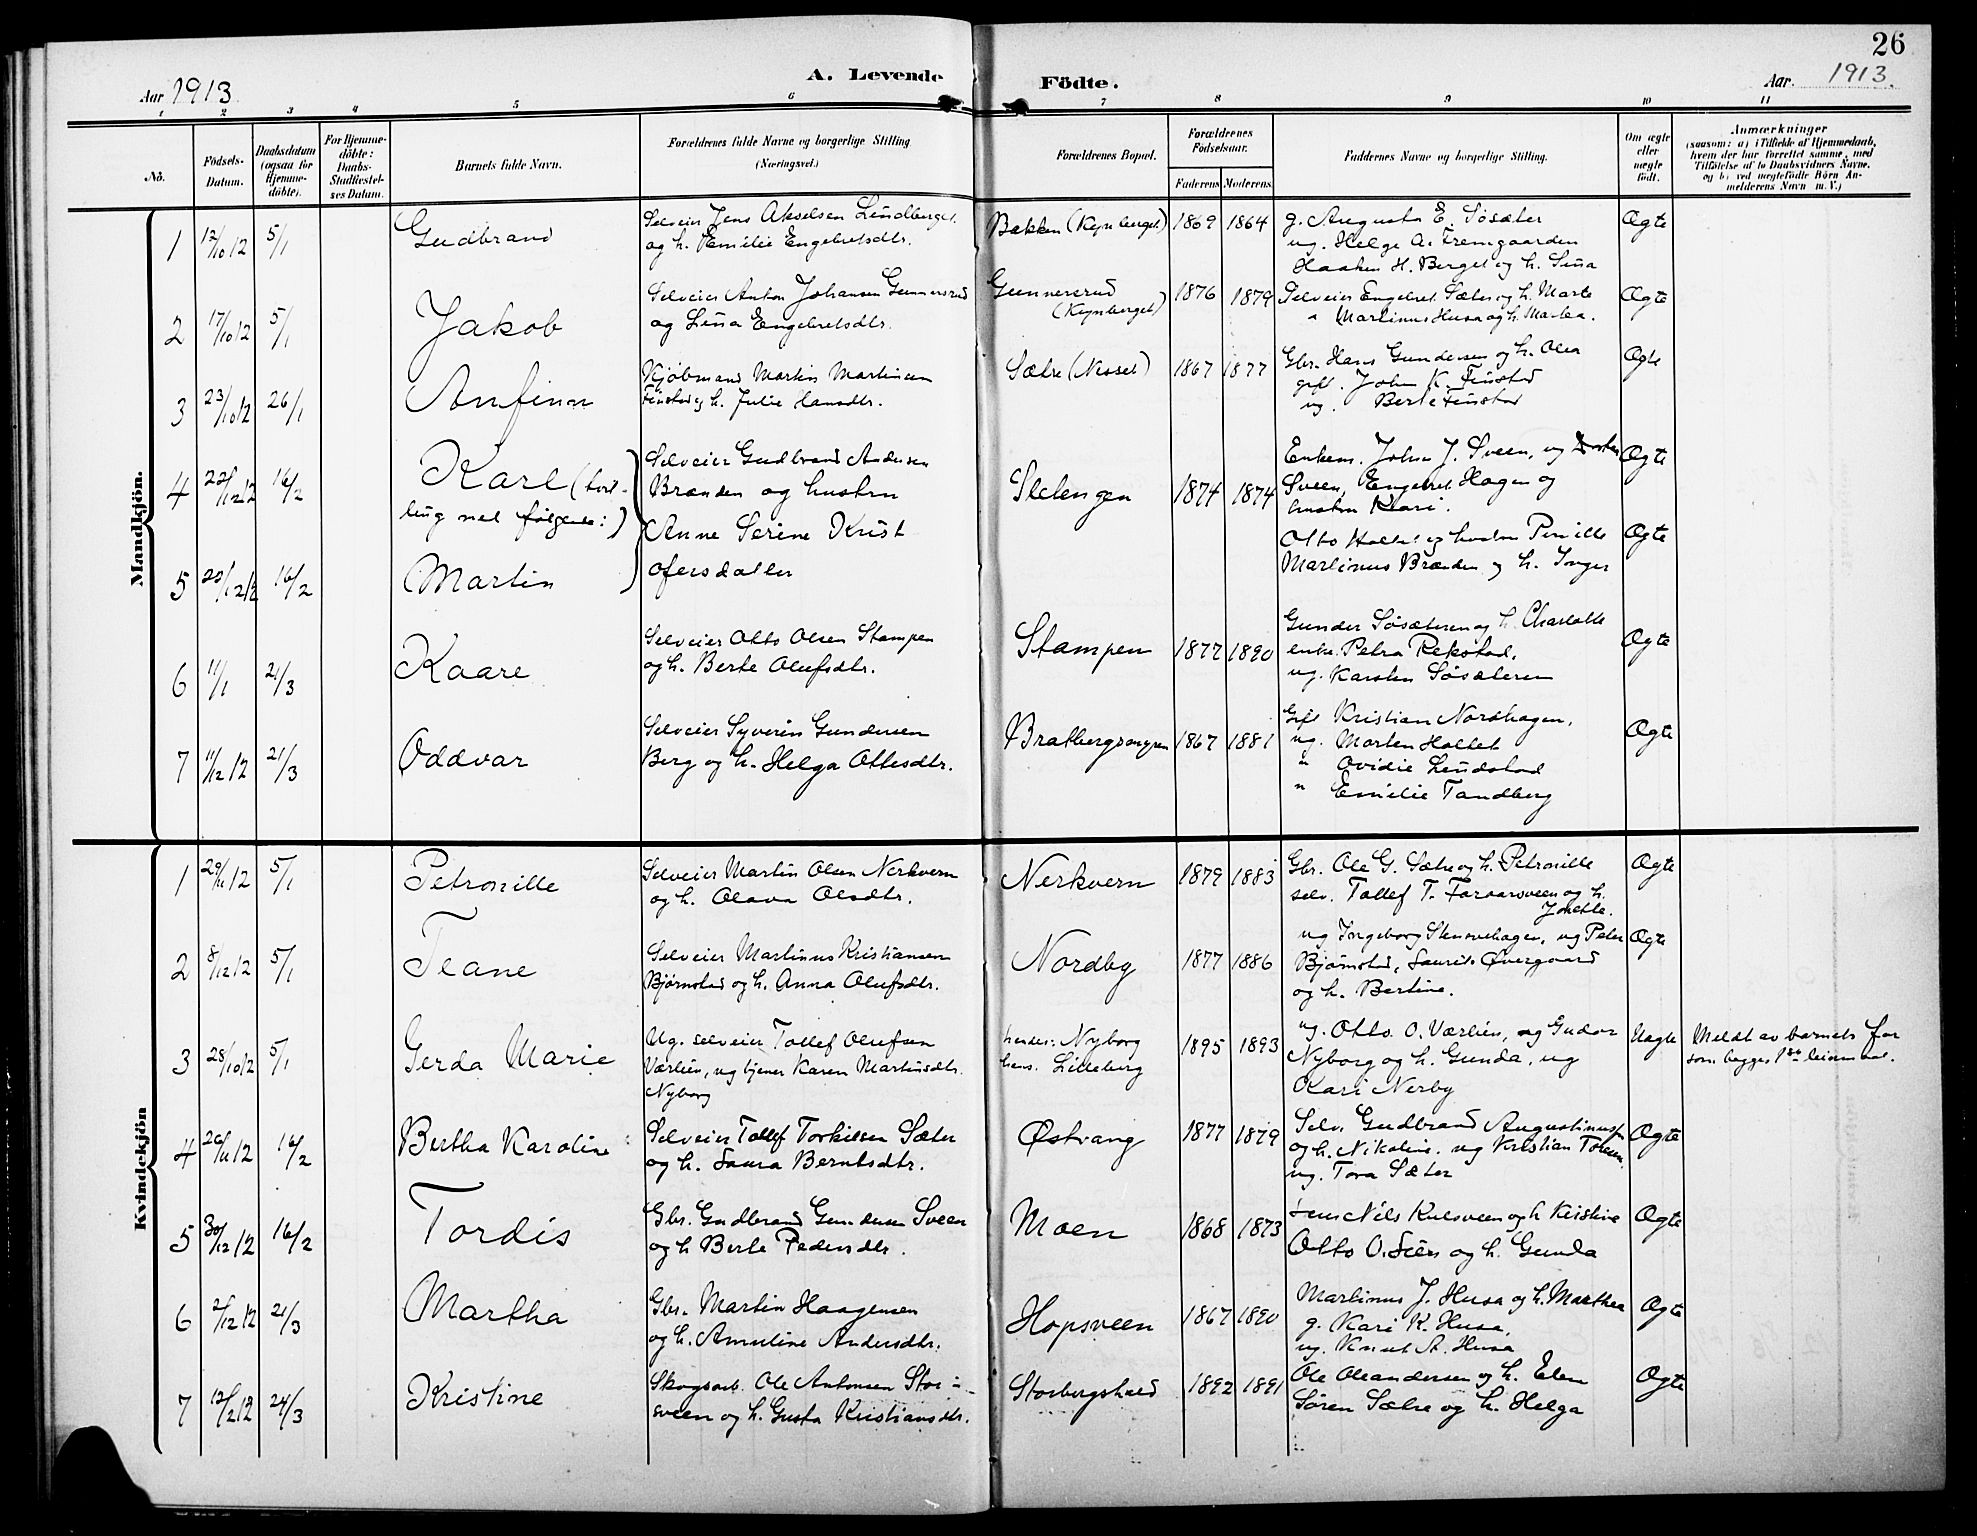 26
Aar 1913.
A. Levende
Födte.
Aar. 1913.
1 2 3 4 5 6 7 8 9 10 11
No.
Födsels-Datum.
Daabsdatum (ogsaa for Hjemmedöbte).
For Hjemmedöbte: Daabs-Stadfæstelses Datum.
Barnets fulde Navn.
Forældrenes fulde Navne og borgerlige Stilling. (Næringsvei.)
Forældrenes Bopæl.
Forældrenes Födselsaar.
Faderens. Moderens.
Faddernes Navne og borgerlige Stilling.
Om ægte eller uægte födt.
Anmærkninger
(saasom: a) i Tilfælde af Hjemmedaab, hvem der har forrettet samme, med Tilföielse af to Daabsvidners Navne, og b) ved uægtefödte Börn Anmelderens Navn m. V.)
Mandkjön.
1 12/10 12 5/1 Gudbrand
Selveier Jens Akselsen Lundberget
og h. Emilie Engebretsdtr.
Bakken (Kynberget) 1869 1864
g. Augusta E. Søsæter
ug. Helge A. Fremgaarden
Haaken H. Berget og h. Sina
Ægte
2 17/10 12 5/1 Jakob
Selveier Anton Johansen Gunnersrud
og Lina Engebretsdtr.
Gunnersrud
(Kynberget) 1876 1879
Selveier Engebret Sæter og h. Marte
" Martinus Husa og h. Martea.
Ægte
3 23/10 12 26/1 Anfinn
Kjøbmand Martin Martinsen
Finstad og h. Julie Hansdtr.
Sætre (Nesset) 1867 1877
Gbr. Hans Gundersen og h. Olea
gift. John K. Finstad
ug. Berte Finstad
Ægte
4 22/12 12 16/2 Karl (tvil-
ling med følgende:)
Selveier Gudbrand Andersen
Brænden og hustru
Anne Serine Krist
ofersdatter
Sletengen 1874 1874
Enkem. John J. Sveen, ug
Sveen, Engebret Hagen og
hustru Kari.
Ægte
5 22/12 12 16/2 Martin
Otto Haltet og hustru Pernille
Martinus Brænden og h. Inger
Ægte
6 11/1 21/3 Kaare
Selveier Otto Olsen Stampen
og h. Berte Olufsdtr.
Stampen 1877 1890
Gunder Søsæteren og h. Charlotte
enke. Petra Rekstad,
ug. Karsten Søsæteren
Ægte
7 11/12 12 21/3 Oddvar
Selveier Syverin Gundersen
Berg og h. Helga Ottesdtr.
Bratbergsengen 1867 1881
Gift Kristian Nordhagen,
ug. Morten Haltet
" Ovidie Lundstad
" Emilie Tandberg
Ægte
Kvindekjön
1 29/11 12 5/1 Petronille
Selveier Martin Olsen Nerkvern
og h. Olava Olsdtr.
Nerkvern 1879 1883
Gbr. Ole G. Sætre og h. Petronille
selv. Tollef T. Foraarsveen og h.
Jonette.
Ægte
2 8/12 12 5/1 Teane
Selveier Martinus Kristiansen
Bjørnstad og h. Anna Olufsdtr.
Nordby 1877 1886
ug Ingeborg Stensvehagen, ug Peter
Bjørnstad, Laurits Øvergaard
og h. Bertine.
Ægte
3 25/10 12 5/1 Gerda Marie
Ug. selveier Tollef Olufsen
Værlien, ug tjener Karen Martinsdtr.
Nyborg
hendes: Nyborg
hans. Lilleberg 1895 1893
ug. Otto O. Værlien, ug Gudor
Nyborg og h. Gunda, ug
Kari Nerby
Uægte
Meldt av barnets far
som begges 1ste leiermaal.
4 26/11 12 16/2 Bertha Karoline
Selveier Tollef Torkilsen Sæter
og h. Laura Berntsdtr.
Østvang 1877 1879
Selv. Gudbrand Augustinusen
og h. Nikoline. ug Kristian Toreen,
ug. Tora Sæter
Ægte
5 30/12 12 16/2 Tordis
Gbr. Gudbrand Gundersen Sveen
og h Berte Pedersdtr.
Moen 1868 1873
Nils Kulsveen og h Kristine
Otto O. Lien og h. Gunda
Ægte
6 2/12 12 21/3 Martha
Gbr. Martin Haagensen
og h. Annetine Andersdtr.
Hopsveen 1867 1890
Martinus J. Husa og h. Marthea
g. Kari K. Husa,
ug. Knut A. Husa
Ægte
7 12/2 12 24/3 Kristine
Skogsarb. Ole Antonsen Stor-
sveen og h. Gusta Kristiansdtr.
Storbergshaed 1892 1891
Ole Oleandersen og h. Elen
Søren Sætre og h. Helga
Ægte